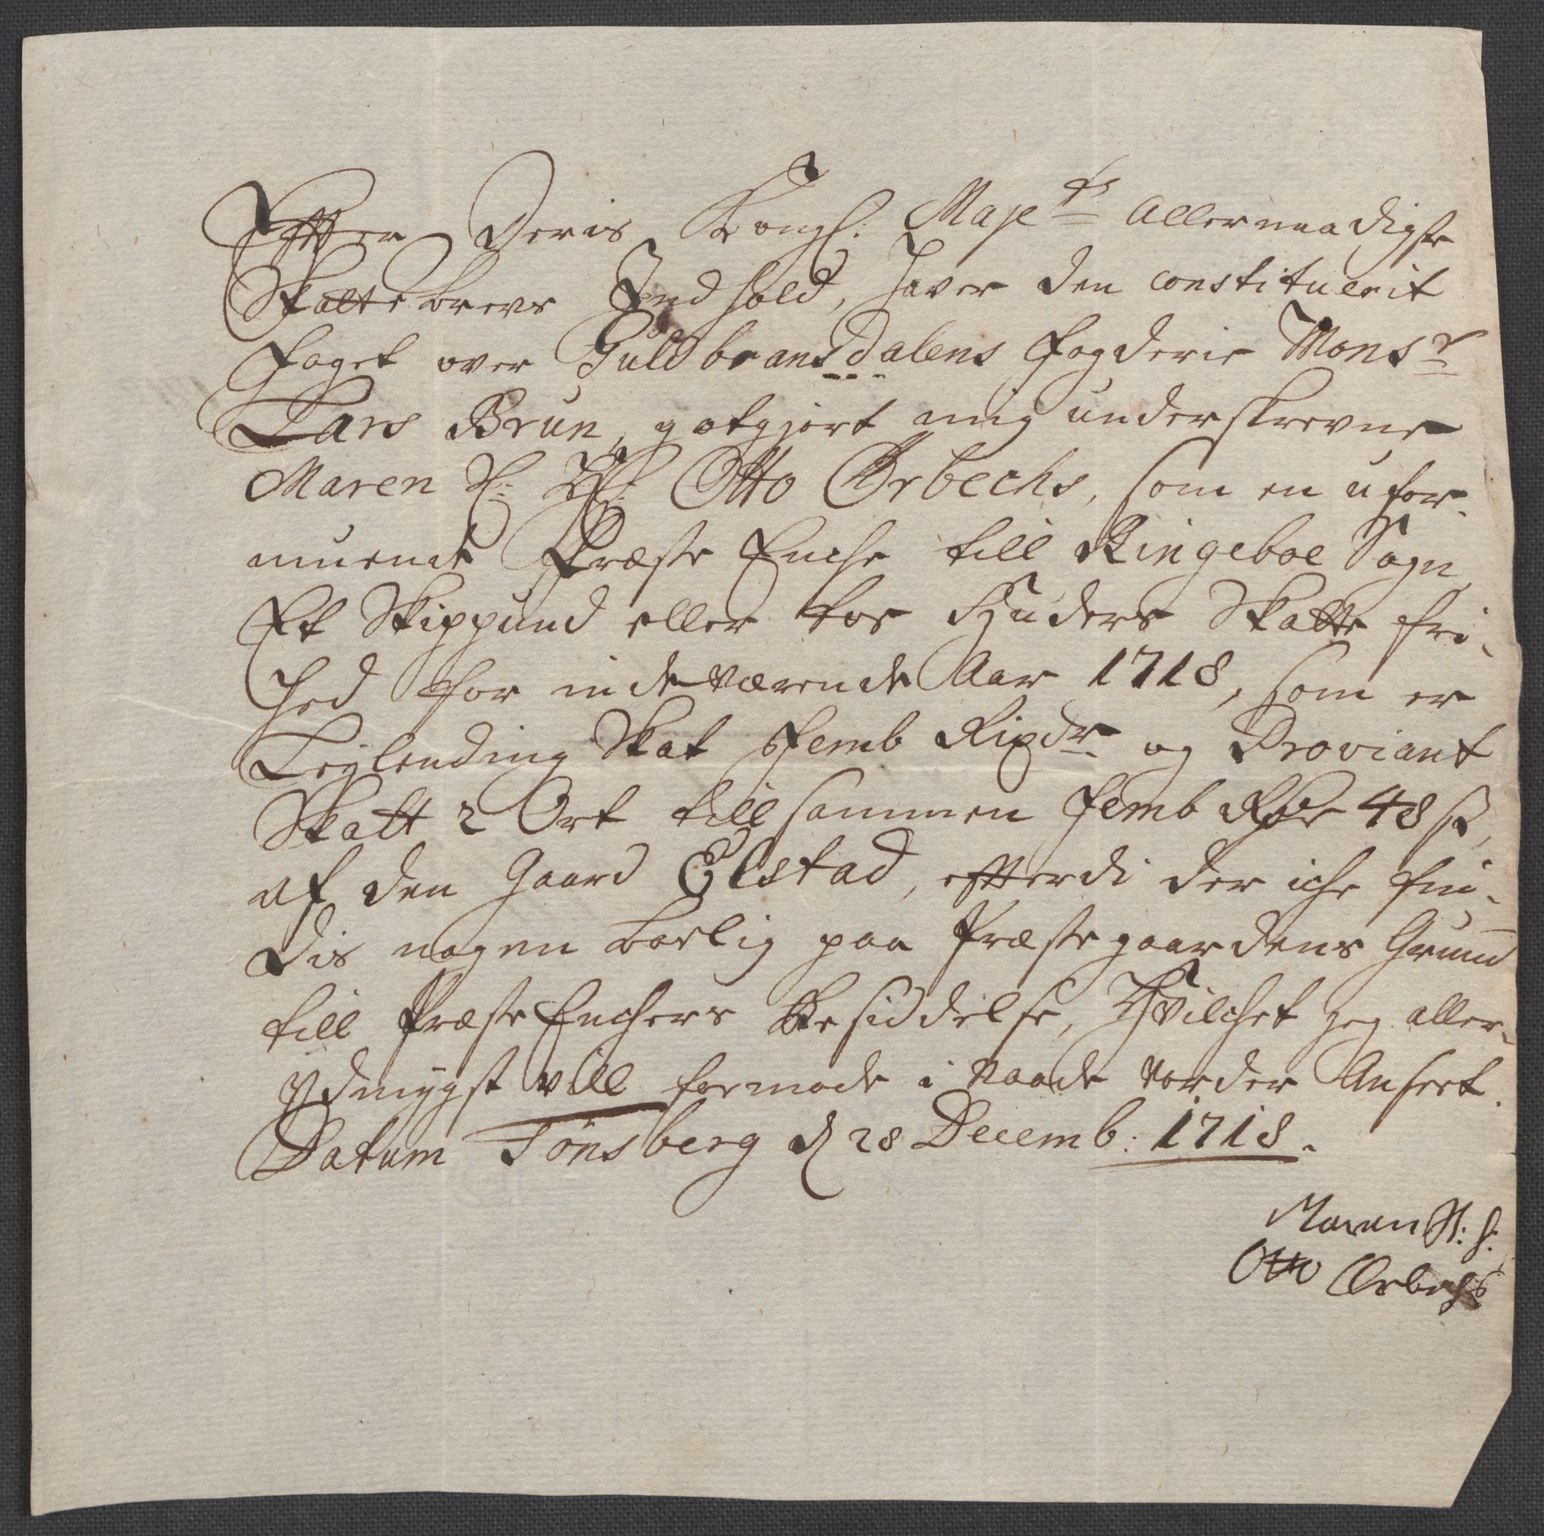 Effter Deris Kongl: Maje^ts Allernaadigste
Skattebrevs Indhold, haver den constituerit
foget over Guldbransdalens fogderie Mons^r
Lars Brun, gotgjort mig underskrevne
Maren Sl: Hr: Otto Ørbechs, som en ufor-
muende Præste Enche till Ringeboe Sogn,
Et Skippund eller toe Huders Skatte fri-
hed for indeværende Aar 1718, som er
Leylending Skat femb Rixdr og Proviant
Skatt 2 Ort tillsammen femb Rdr 48 s,
af den Gaard Elstad, efftterdi der iche fin-
dis nogen boelig paa Præstegaardens Grund
till Præste Enchers Besiddelse, Hvilchet jeg aller-
ydmygst vill formode i Naade vorder Anseet.
Datum Tönsberg d 28 Decemb: 1718.
Maren Sl: H:
Otto Ørbechs